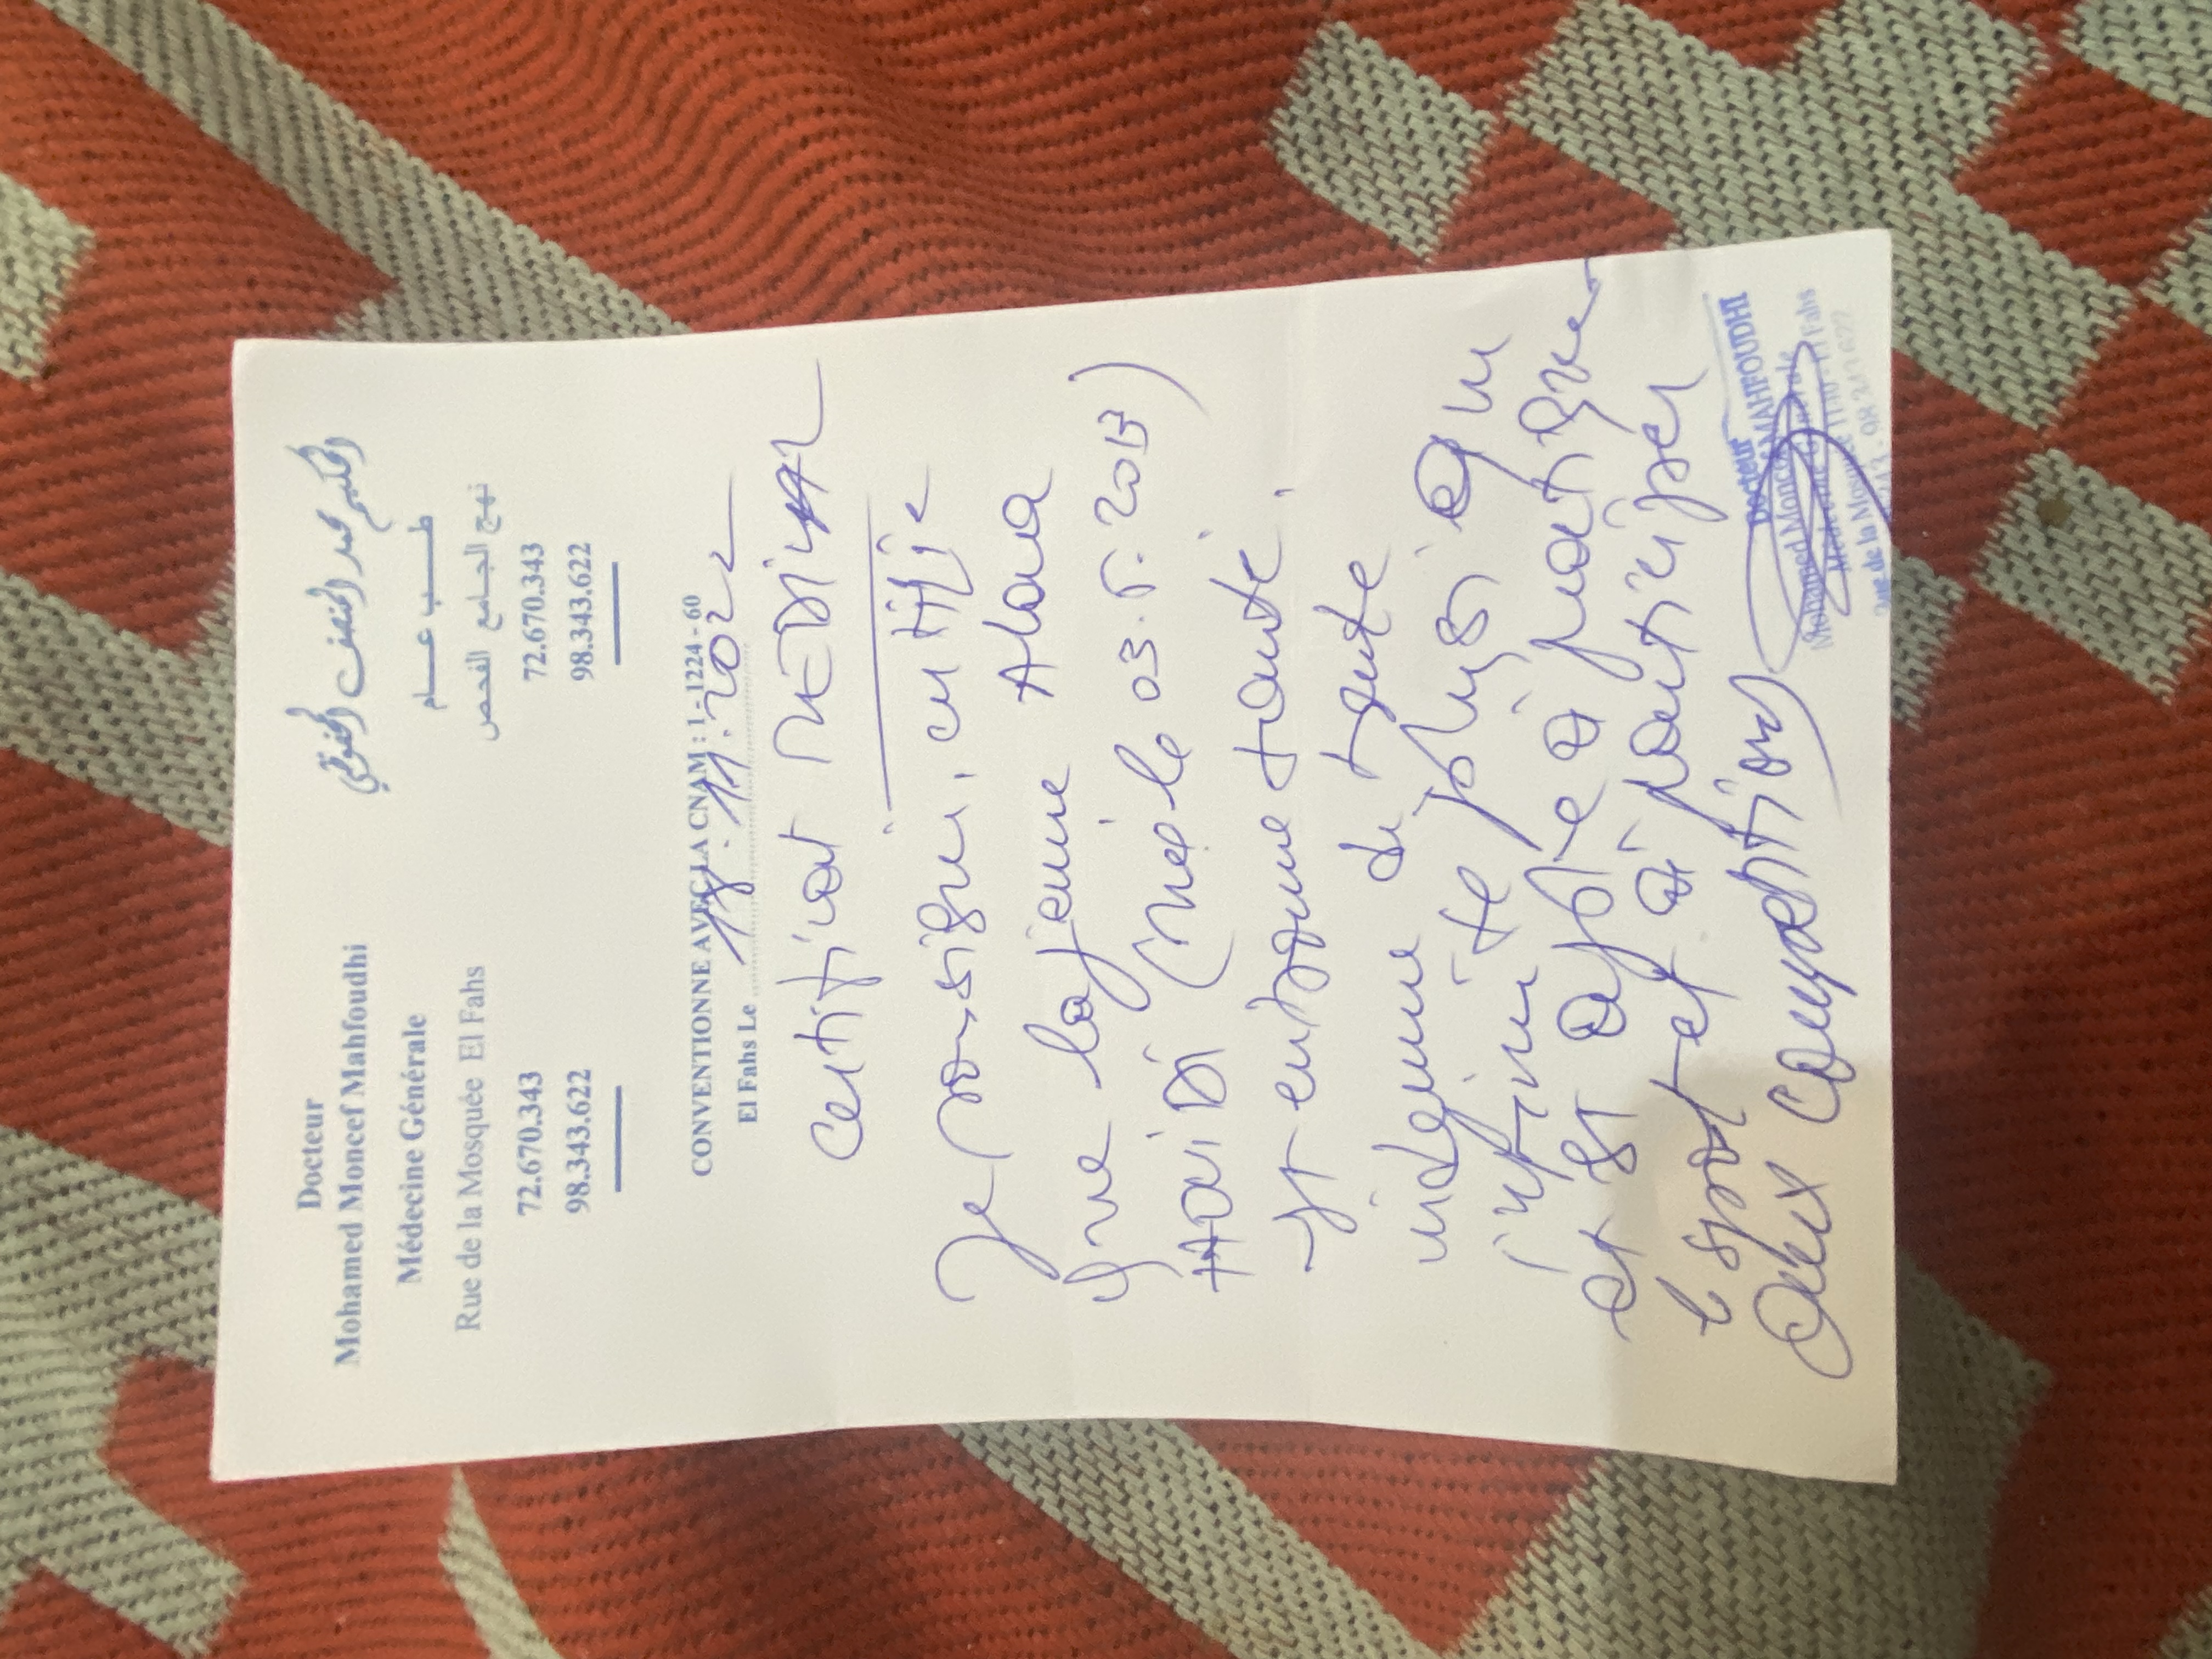 Docteur
Mohamed Moncef Mahfoudhi
Médecine Générale
Rue de la Mosquée El Fahs
72.670.343
98.343.622
الحكيم محمد المنصف المحفوظي
طــــب عــــام
نهج الجـامع الفحص
72.670.343
98.343.622
CONVENTIONNE AVEC LA CNAM : 1 - 1224 - 60
El Fahs Le 18.11.2022
Certificat MEDICAL
Je soussigné, certifie
que la jeune Alaa
HAIDI (née le 03.5.2013)
est en bonne santé.
indemne de toute
infirmité physique
et est apte à pratiquer
le sport et à participer
aux compétitions
Docteur
Mohamed Moncef MAHFOUDHI
Médecine Générale
Rue de la Mosquée 1140 - El Fahs
98 343 622